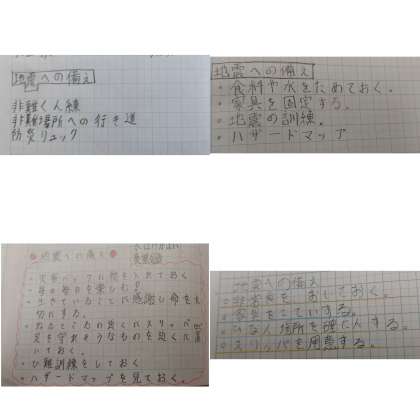 地震への備え
非難く人練
非難場所への行き道
防災リュック
地震への備え
・食料や水をためておく。
・家具を固定する。
・地震の訓練。
・ハザードマップ
地震への備え
れておく
・毎日毎日を楽しむ
・生きていることに感謝し命を大
切にする。
ねるところの近くにスリッパ
足を守れそうなものを近くに置
いておく。
・ひ難訓練をしておく
・ハザードマップを見ておく。
地震への備え
・非常食を しておく。
・家具を する。
・ひなん場所を確にんする。
・スリッパを用意する。